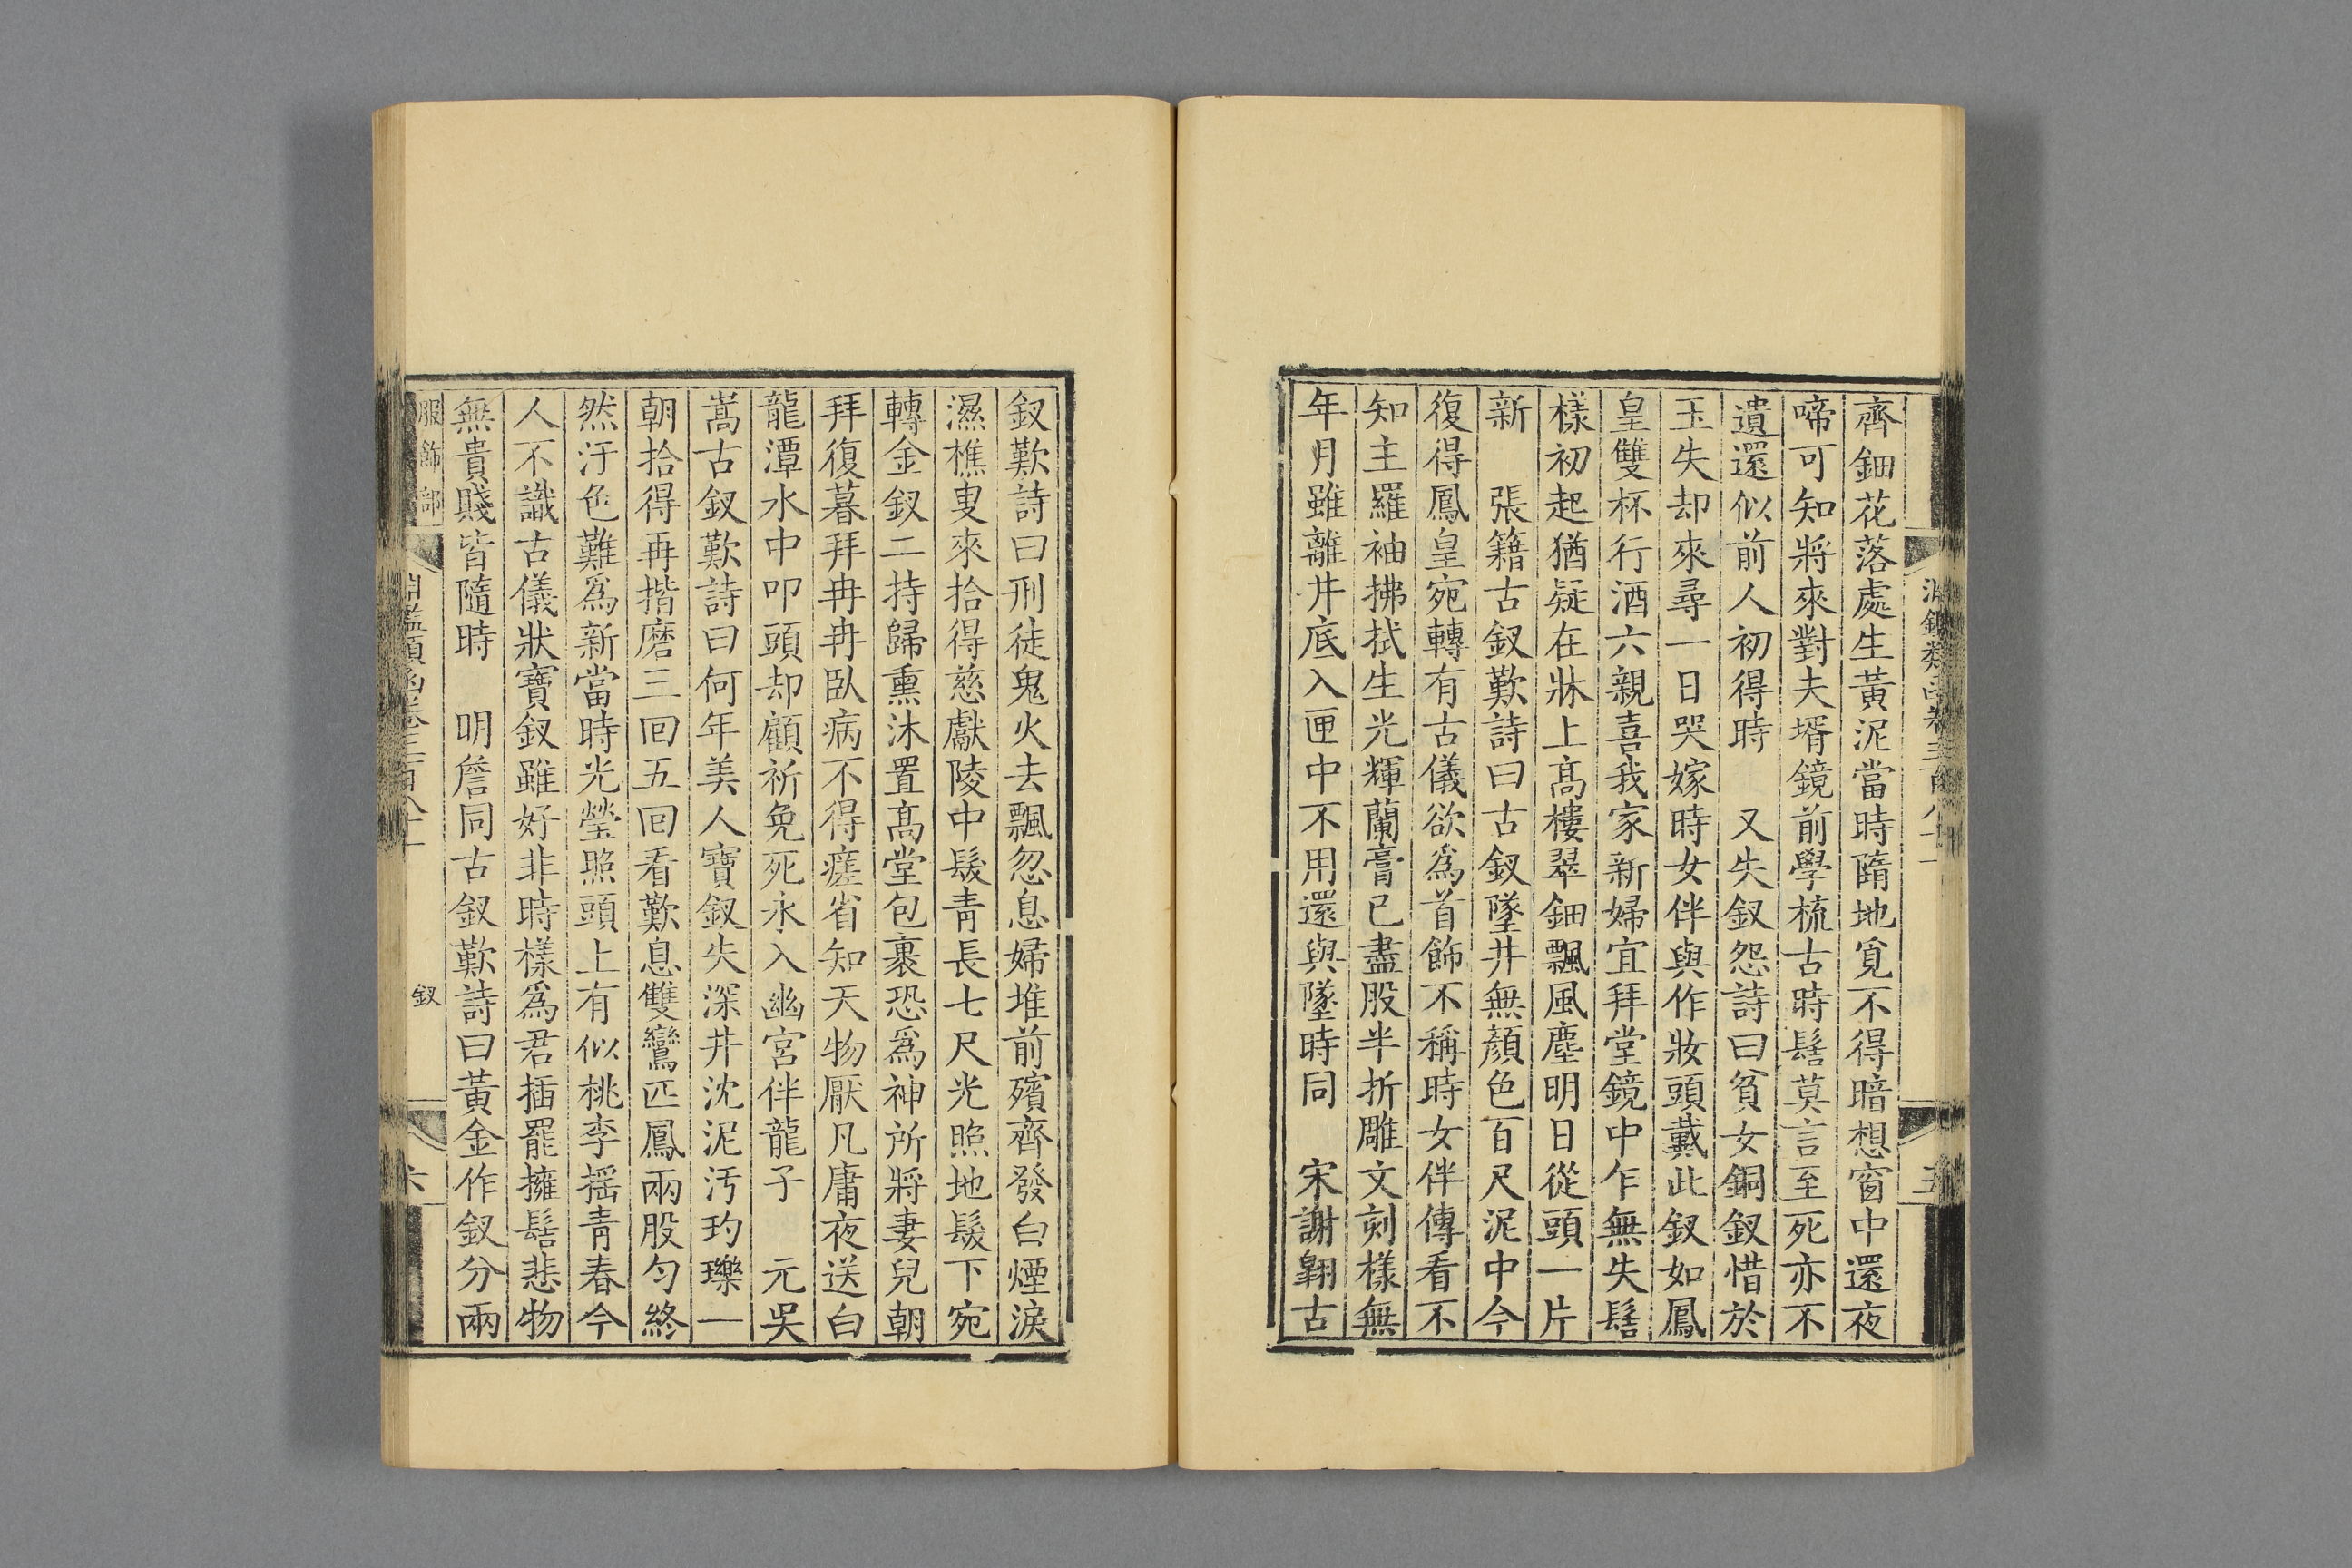 淵鑑類函卷三百八十一
五
齊鈿花落處生黃泥當時隋地覓不得暗想窗中還夜
啼可知將來對夫壻鏡前學梳古時髻莫言至死亦不
遺還似前人初得時　又失釵怨詩曰貧女銅釵惜於
玉失却來尋一日哭嫁時女伴與作妝頭戴此釵如鳳
皇雙杯行酒六親喜我家新婦宜拜堂鏡中乍無失髻
樣初起猶疑在牀上高樓翠鈿飄風塵明日從頭一片
新　張籍古釵歎詩曰古釵墜井無顏色百尺泥中今
復得鳳皇宛轉有古儀欲爲首飾不稱時女伴傳看不
知主羅袖拂拭生光輝蘭膏已盡股半折雕文刻樣無
年月雖離井底入匣中不用還與墜時同　宋謝翱古
釵歎詩曰刑徒鬼火去飄忽息婦堆前殯齊發白煙淚
濕樵叟來拾得慈獻陵中髮青長七尺光照地髮下宛
轉金釵二持歸熏沐置高堂包裹恐爲神所將妻兒朝
拜復暮拜冉冉臥病不得瘥省知天物厭凡庸夜送白
龍潭水中叩頭却顧祈免死永入幽宮伴龍子　元吳
嵩古釵歎詩曰何年美人寶釵失深井沈泥汚玓瓅一
朝拾得再揩磨三回五回看歎息雙鸞匹鳳兩股勻終
然汙色難爲新當時光瑩照頭上有似桃李搖青春今
人不識古儀狀寶釵雖好非時樣爲君插罷擁髻悲物
無貴賤皆隨時　明詹同古釵歎詩曰黃金作釵分兩
服飾部
淵鑑類函卷三百八十一
釵
六